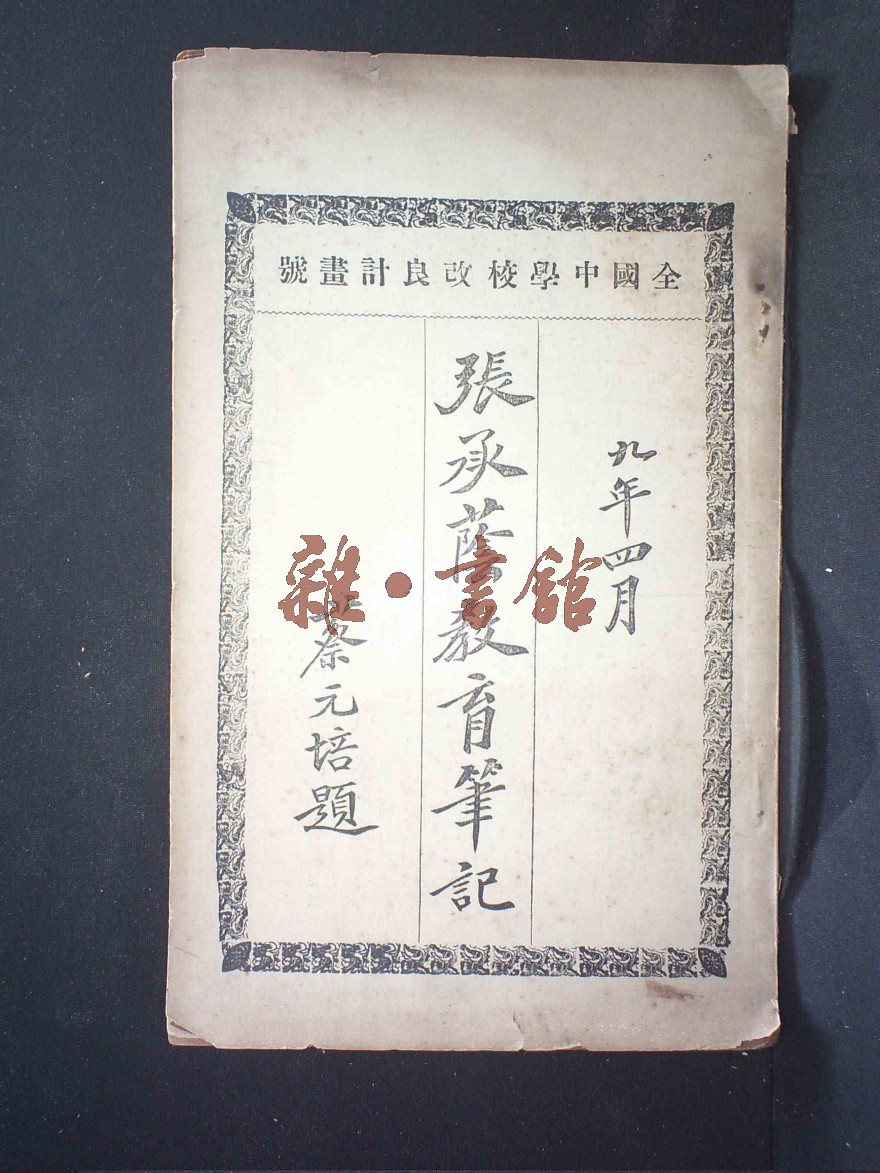 全國中學校改良計畫號
九年四月
張承蔭敎育筆記
蔡元培題
雜·書館